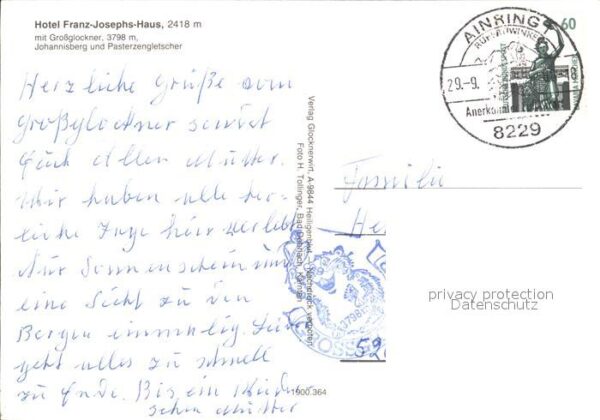 Hotel Franz-Josephs-Haus, 2418 m
mit Großglockner, 3798 m,
Johannisberg und Pasterzengletscher
Herzliche Grüße vom
Großglockner sendet
Euch Allen Mutter.
Wir haben alle herr-
liche Tage hier verlebt
Nur Sonnenschein und
eine Sicht zu den
Bergen einmalig. Leider
geht alles zu schnell
zu Ende. Bis ein Wieder-
sehen Mutter
Verlag Glocknerwirt, A-9844 Heiligenblut
Foto H. Tollinger, Bad
Nachdruck verboten
1900.364
AINRING 1
RUPERTIWINKEL
29.-9.
8229
60
Familie
He
3798
GROSSG
52
privacy protection
Datenschutz